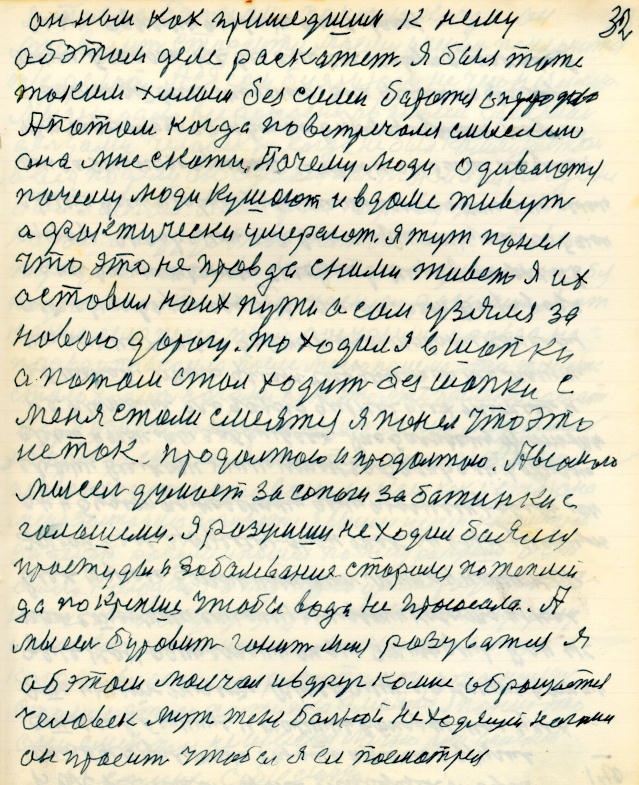 32
он ным как пришедшим к нему
об этом деле раскажет. Я был тоже
таким хилым без силы
А потом когда повстречался смыслию
она мне скоти. Почему люди одиваются
почему люди кушают и в доме живут
а фактически умерают. я тут понел
что это не правда сними живеть я их
оставил на их пути а сам узялся за
новою дорогу. то ходил я в шапки
а потом стал ходит без шапки с
меня стали смеятся я понел что это
не так. продолжаю и продолжаю. А
мысел думает за сапоги за батинки с
галошеми. Я разувши не ходил баялся
простуды и заболевание старался потеплей
да покрепше чтобы вода не прососала. А
мысел буровит гонит меня разуватся я
об этом молчал и вдруг комне обращается
человек муж жены больной не ходящей ногами
он просит чтобы я ея посмотрел